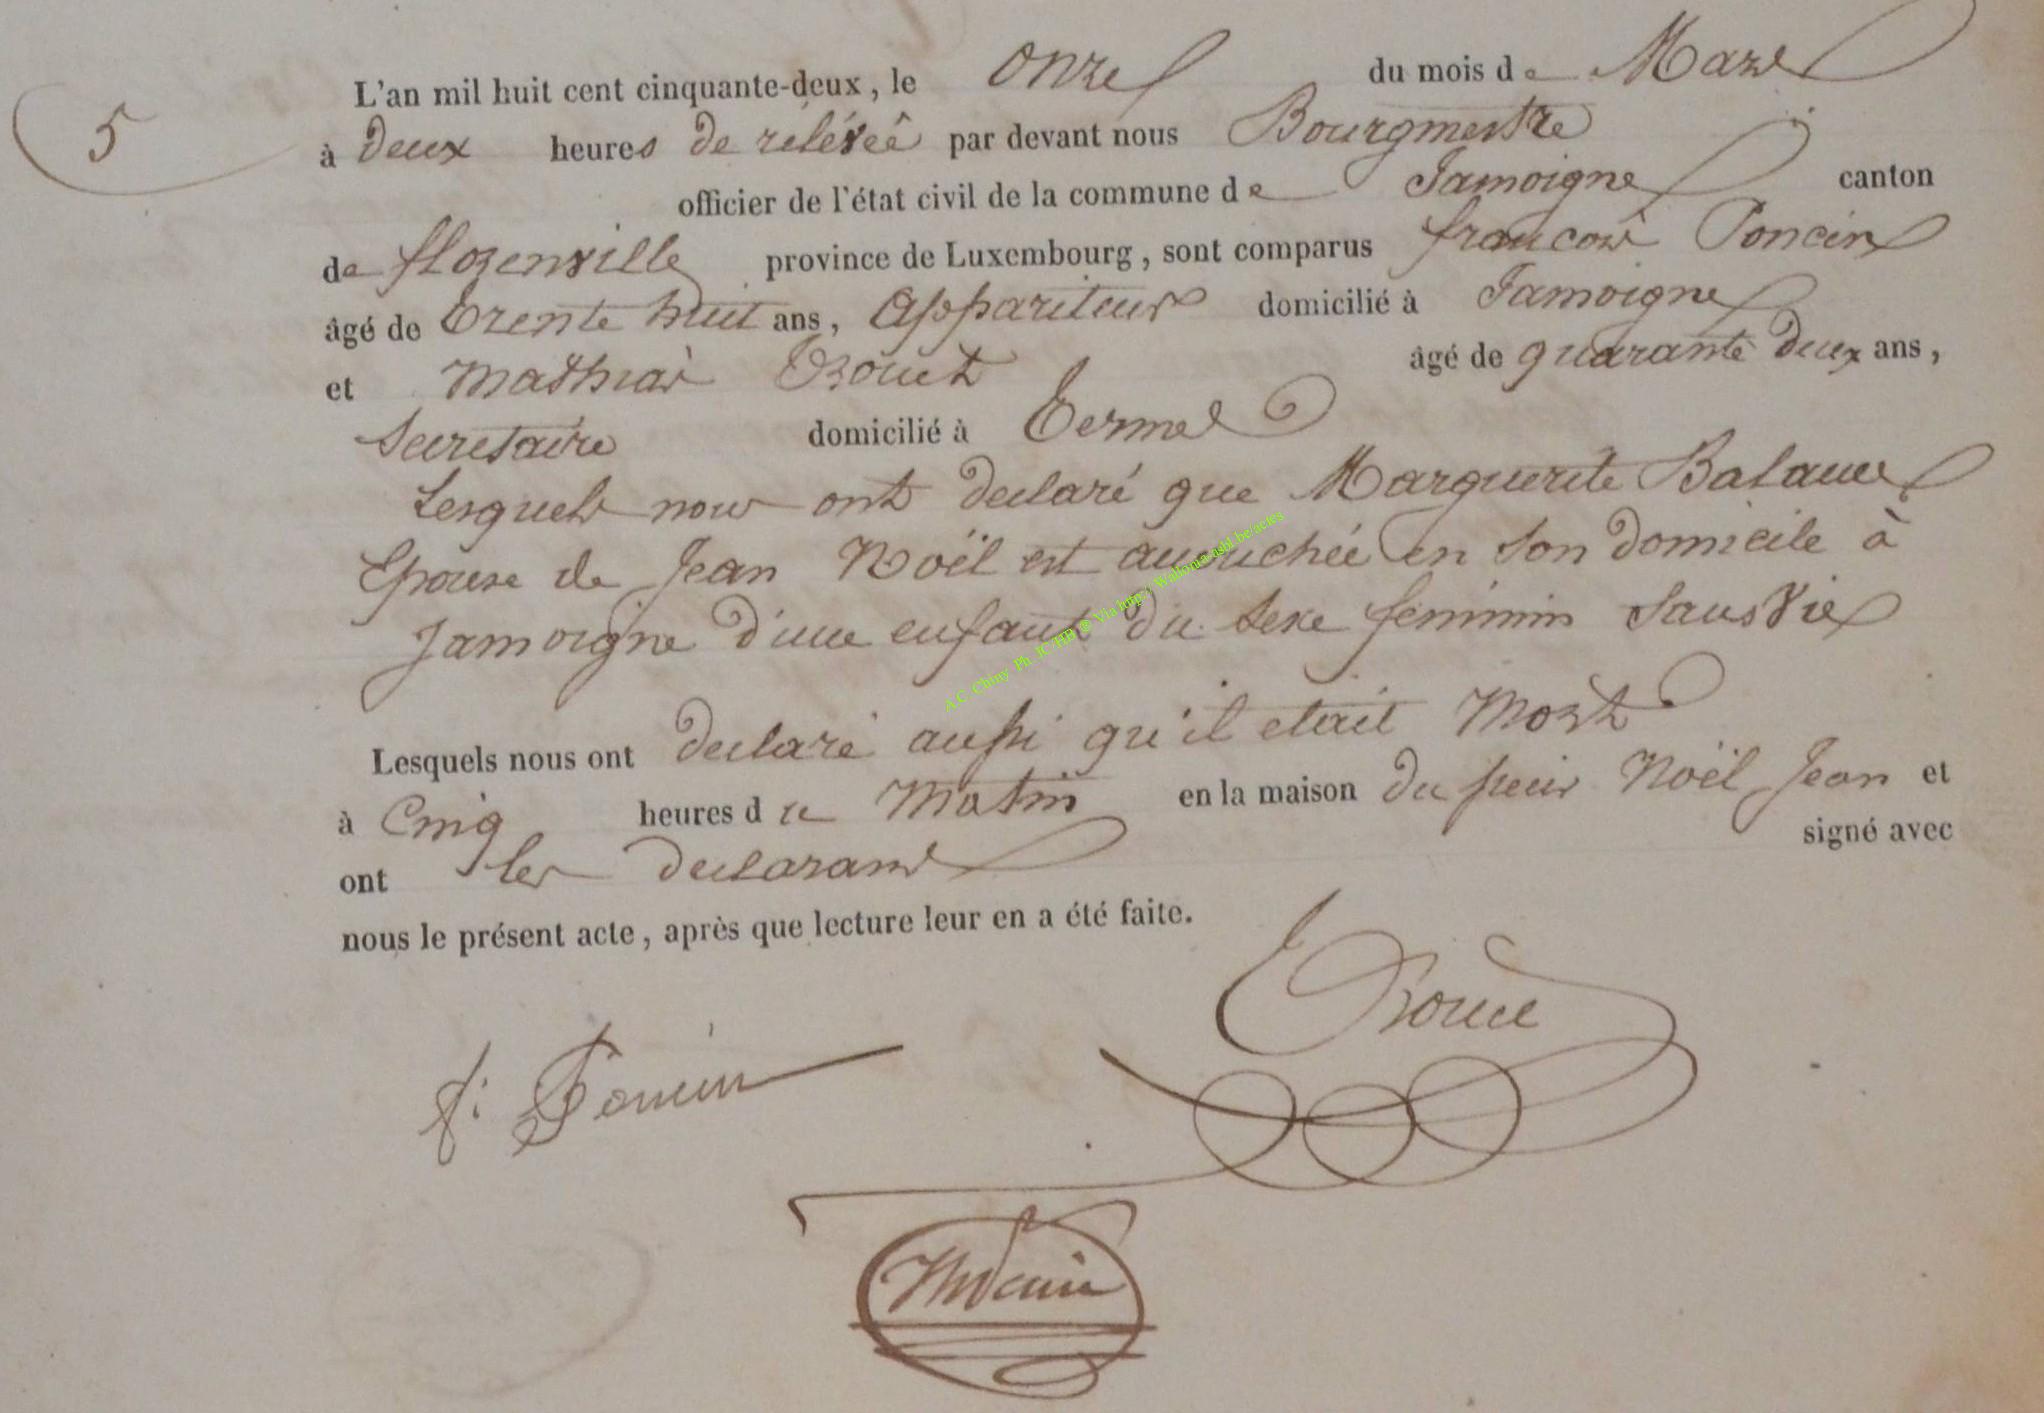 5
L'an mil huit cent cinquante-deux, le onze du mois de Mars
à deux heures de rélévée par devant nous Bourgmestre
officier de l'état civil de la commune de Jamoigne canton
de florenville province de Luxembourg, sont comparus francois Poncin
âgé de trente huit ans, appariteur domicilié à Jamoigne
et Mathias Rouet âgé de quarante deux ans,
Secretaire domicilié à Termes
Lesquels nous ont declaré que Marguerite
Epouse de Jean Noël est accouchée en son domicile à
Jamoigne d'une enfant du sexe feminin sans Vie
Lesquels nous ont declaré aussi qu'il etait Mort
à Cinq heures du Matin en la maison du sieur Noël Jean et
ont les declarans signé avec
nous le présent acte, après que lecture leur en a été faite.
f: Poncin
A.C. Chiny Ph. JC HB ® Via http://Wallonia-asbl.be/actes